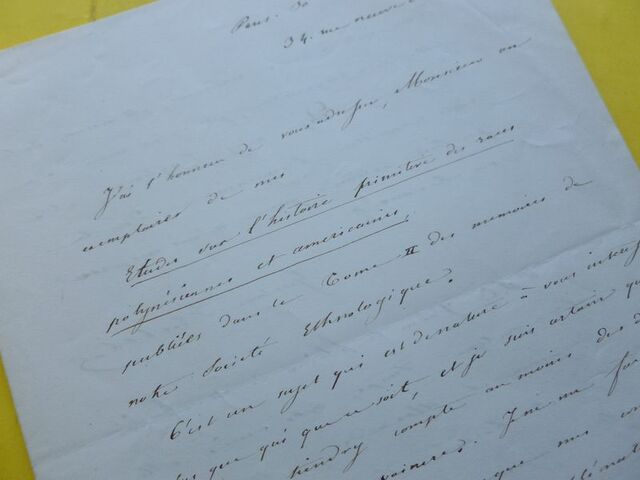 Paris. 30
34. rue neuve
J'ai l'honneur de vous adresser, Monsieur un
exemplaire de mes
Etudes sur l'histoire primitive des races
polynésiennes et américaines,
publiées dans le Tome II des mémoires de
notre Société Ethnologique.
C'est un sujet qui est de nature à vous
plus que qui que ce soit, et je suis certain
compte au moins des
J'ai me
que mes